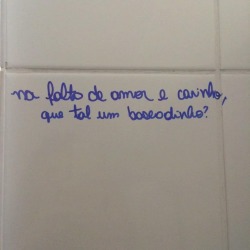 na falta de amor e carinho,
que tal um baseadinho?